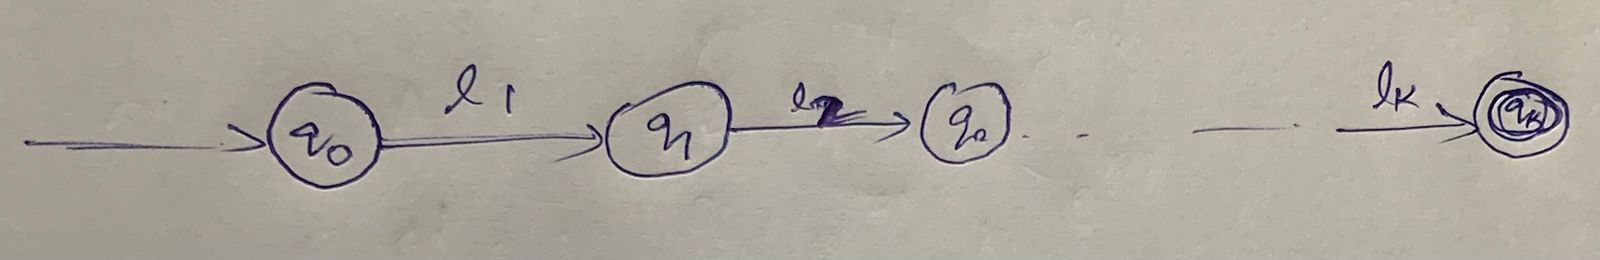 q0 l1 q1 l2 q0 lK qK